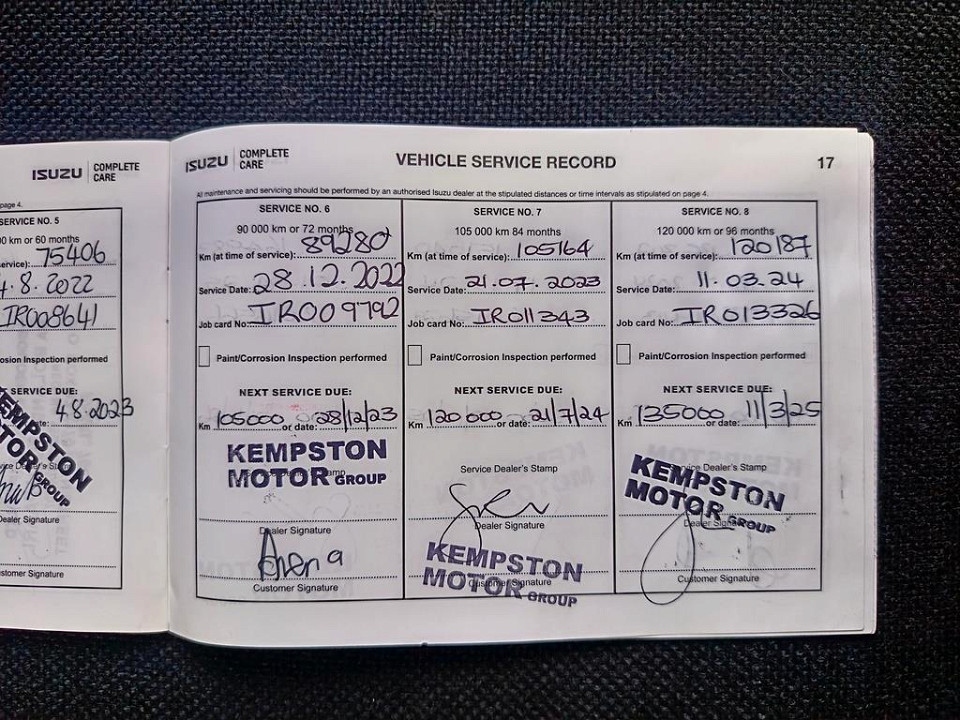 ISUZU COMPLETE CARE
page 4.
SERVICE NO. 5
0 km or 60 months
service): 75406
4.8.2022
IR008641
osion Inspection performed
SERVICE DUE:
4.8.2023
KEMPSTON
MOTOR GROUP
Dealer Signature
stomer Signature
ISUZU COMPLETE CARE
VEHICLE SERVICE RECORD
17
All maintenance and servicing should be performed by an authorised Isuzu dealer at the stipulated distances or time intervals as stipulated on page 4.
SERVICE NO. 6
90 000 km or 72 months
Km (at time of service): 89280
Service Date: 28.12.2022
Job card No: IR009792
Paint/Corrosion Inspection performed
NEXT SERVICE DUE:
Km 105000 or date: 28/12/23
KEMPSTON
MOTOR GROUP
Dealer Signature
Customer Signature
SERVICE NO. 7
105 000 km 84 months
Km (at time of service): 105164
Service Date: 21.07.2023
Job card No: IR011343
Paint/Corrosion Inspection performed
NEXT SERVICE DUE:
Km 120 000 or date: 21/7/24
Service Dealer's Stamp
Dealer Signature
KEMPSTON
MOTOR GROUP
Customer Signature
SERVICE NO. 8
120 000 km or 96 months
Km (at time of service): 120187
Service Date: 11.03.24
Job card No: IR013326
Paint/Corrosion Inspection performed
NEXT SERVICE DUE:
Km 135000 or date: 11/3/25
Service Dealer's Stamp
KEMPSTON
MOTOR GROUP
Dealer Signature
Customer Signature